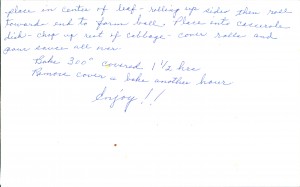 place in center of leaf - rolling up sides then roll
towards end to form ball. Place into casserole
dish - chop up rest of cabbage - cover rolls and
pour sauce all over
Bake 300° covered 1 1/2 hrs
Remove cover & bake another hour
Enjoy!!